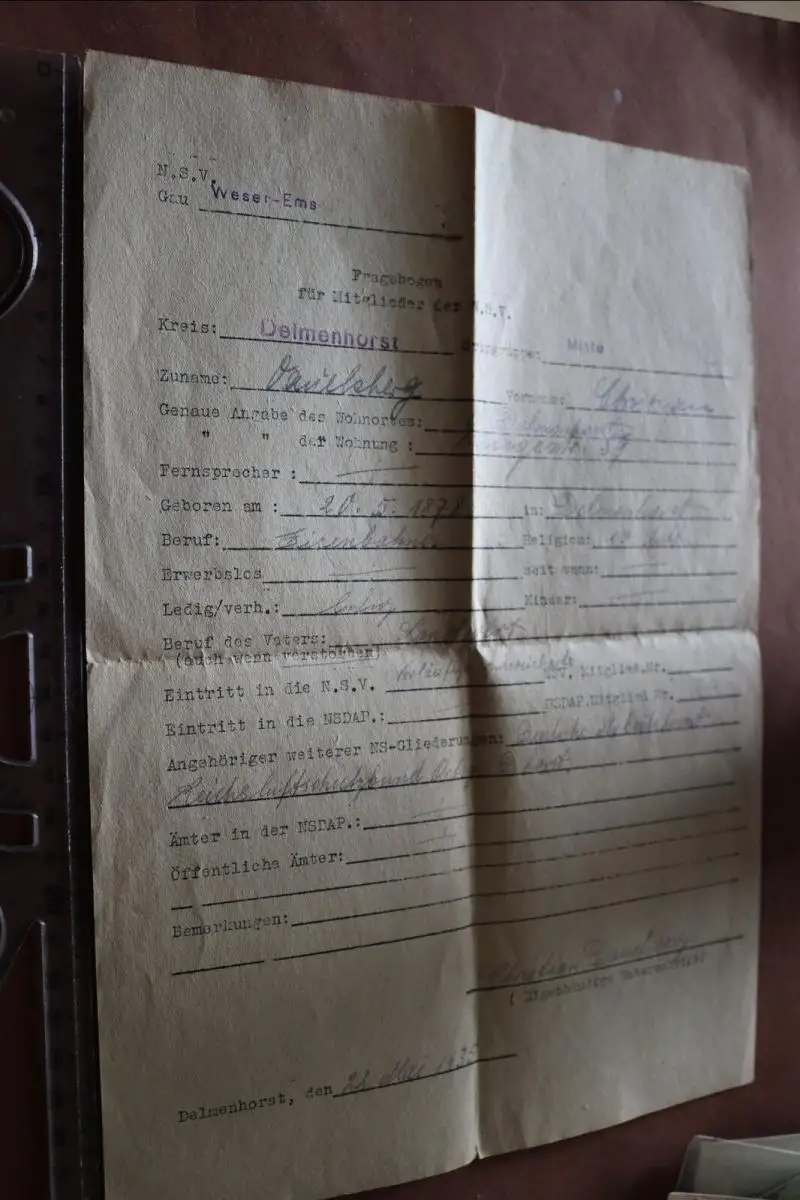 N.S.V.
Gau Weser-Ems
Fragebogen
für Mitglieder der N.S.V.
Kreis: Delmenhorst Ortsgruppe: Mitte
Zuname: Dauelsberg Vorname: Christian
Genaue Angabe des Wohnortes: Delmenhorst
" " der Wohnung :
Fernsprecher :
Geboren am : 20. 5. 1878 in: Delmenhorst
Beruf: Religion:
Erwerbslos seit wann:
Ledig/verh.: Kinder:
Beruf des Vaters: Landwirt
(auch wenn verstorben)
Eintritt in die N.S.V. NSV. Mitglied.Nr.
Eintritt in die NSDAP.: NSDAP.Mitglied Nr.
Angehöriger weiterer NS-Gliederungen: Deutsche Arbeitsfront
Reichsluftschutzbund
Ämter in der NSDAP.:
Öffentliche Ämter:
Bemerkungen:
Christian Dauelsberg
( Eigenhändige Unterschrift)
Delmenhorst, den 28 Mai 1935